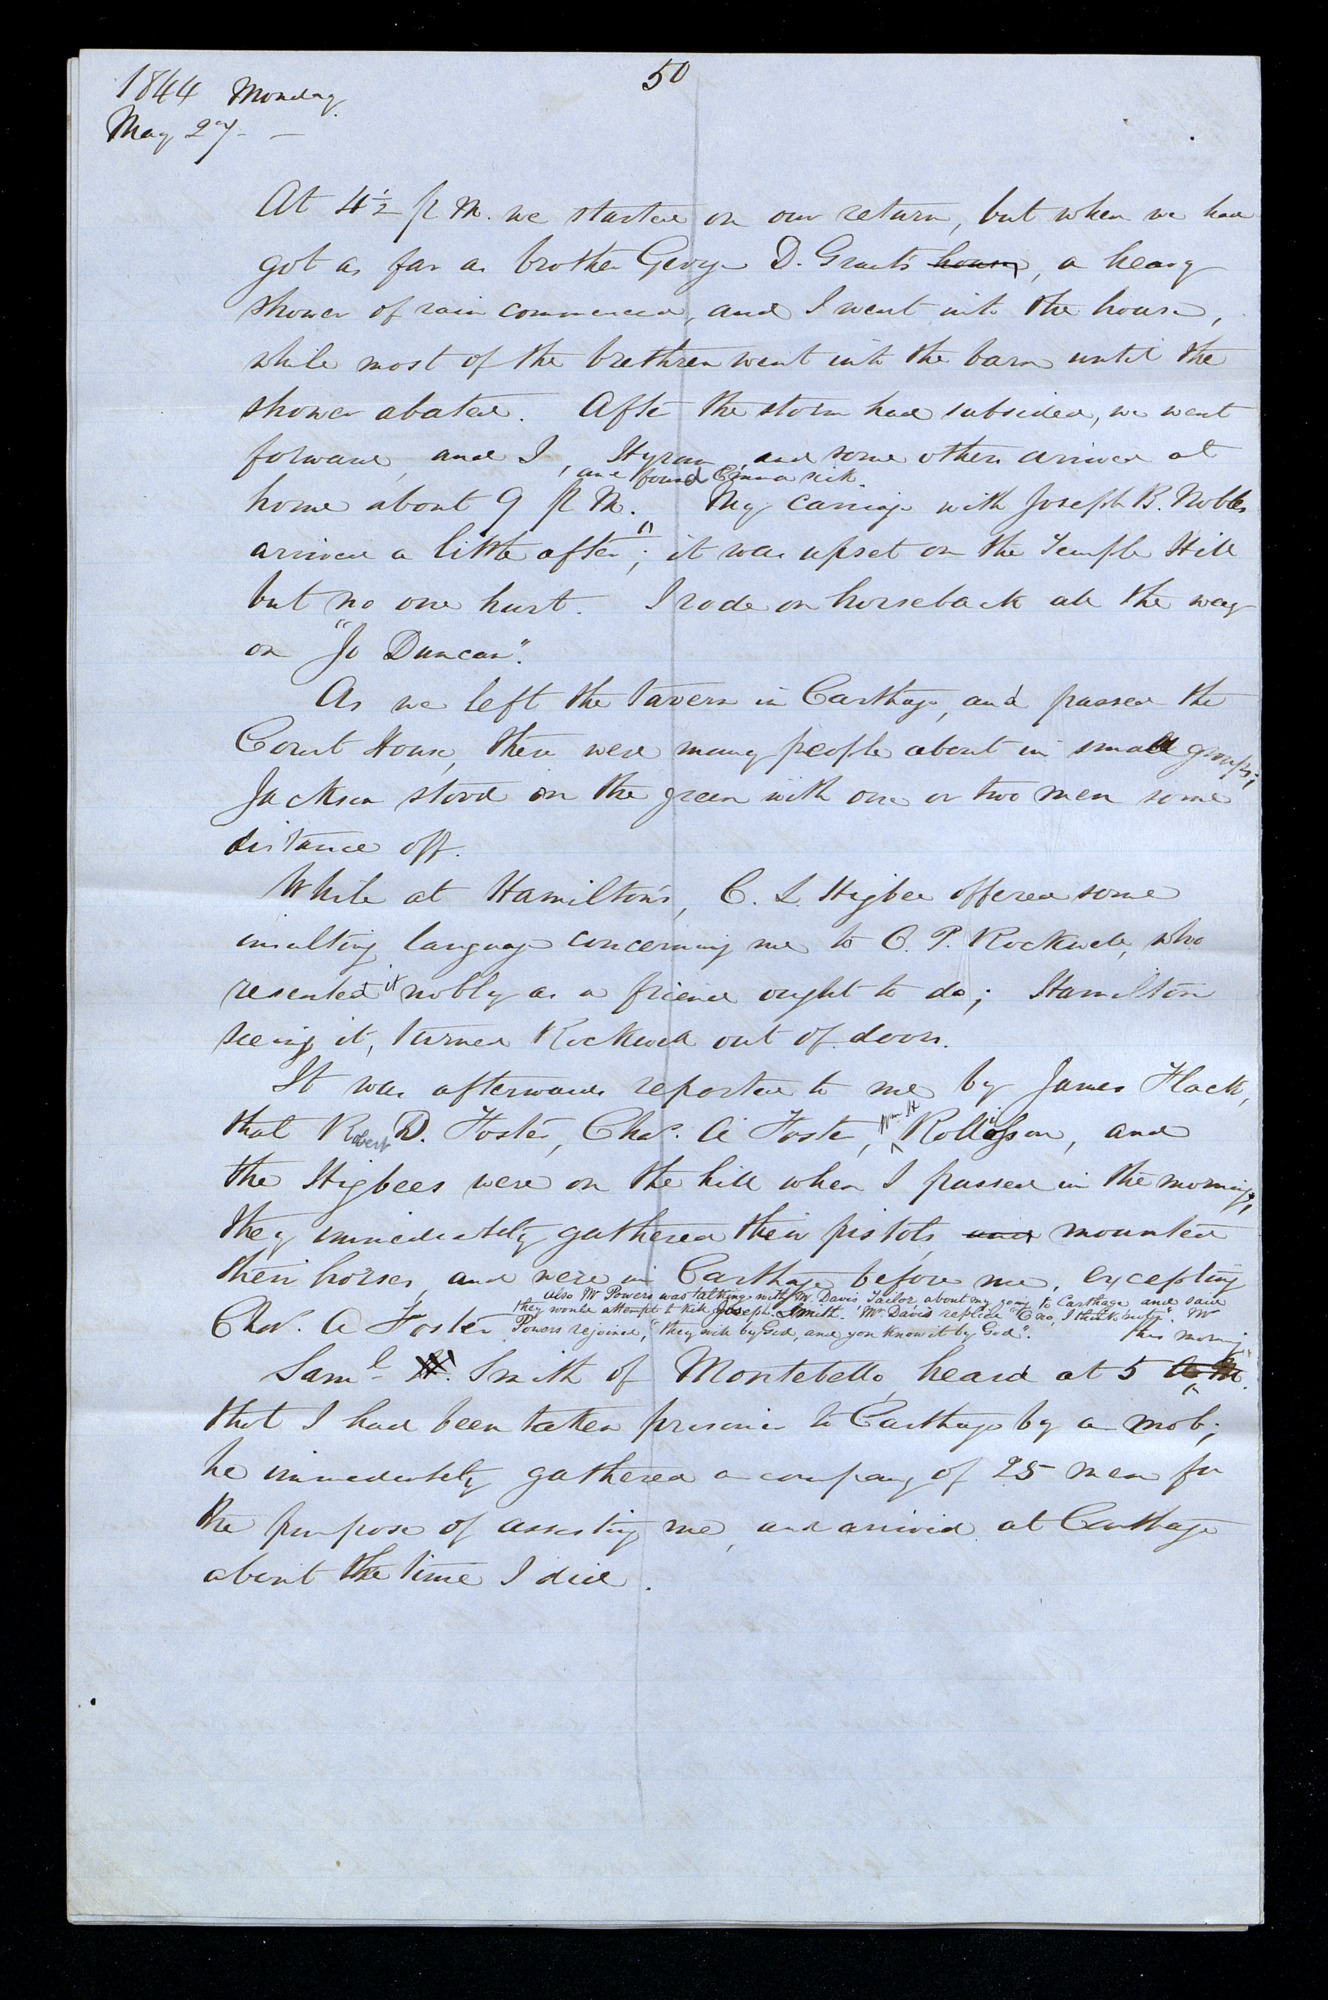 50
1844 Monday
May 27 —
At 4½ p m. we started on our return, but when we had
got as far as brother George D. Grant's house, a heavy
shower of rain commenced, and I went into the house,
while most of the brethren went into the barn until the
shower abated. After the storm had subsided, we went
forward, and I, Hyrum, and some others arrived at
and found Emma sick.
home about 9 p m. My carriage with Joseph B. Nobles
arrived a little after; it was upset on the Temple Hill
but no one hurt. I rode on horseback all the way
on "Jo Duncan".
As we left the tavern in Carthage, and passed the
Court House, there were many people about in small groups;
Jackson stood on the green with one or two men some
distance off.
While at Hamilton's, C. L. Higbee offered some
insulting language concerning me to O. P. Rockwell, who
resented it nobly as a friend ought to do; Hamilton
seeing it, turned Rockwell out of doors.
It was afterwards reported to me by James Flack,
that Robert D. Foster, Chas. A Foster, Wm H Rollosson, and
the Higbees were on the hill when I passed in the morning;
they immediately gathered their pistols, and mounted
their horses, and were in Carthage before me, excepting
also Mr Powers was talking with Mr. Davis Tailor about my going to Carthage and said
they would attempt to kill Joseph Smith. Mr Davis replied "O no, I think not". Mr
Chas. A Foster. Powers rejoined, "they will by God, and you know it by God".
this morning
Saml H. Smith of Montebello, heard at 5 A M.
that I had been taken prisoner to Carthage by a mob;
he immediately gathered a company of 25 men for
the purpose of assisting me, and arrived at Carthage
about the time I did.